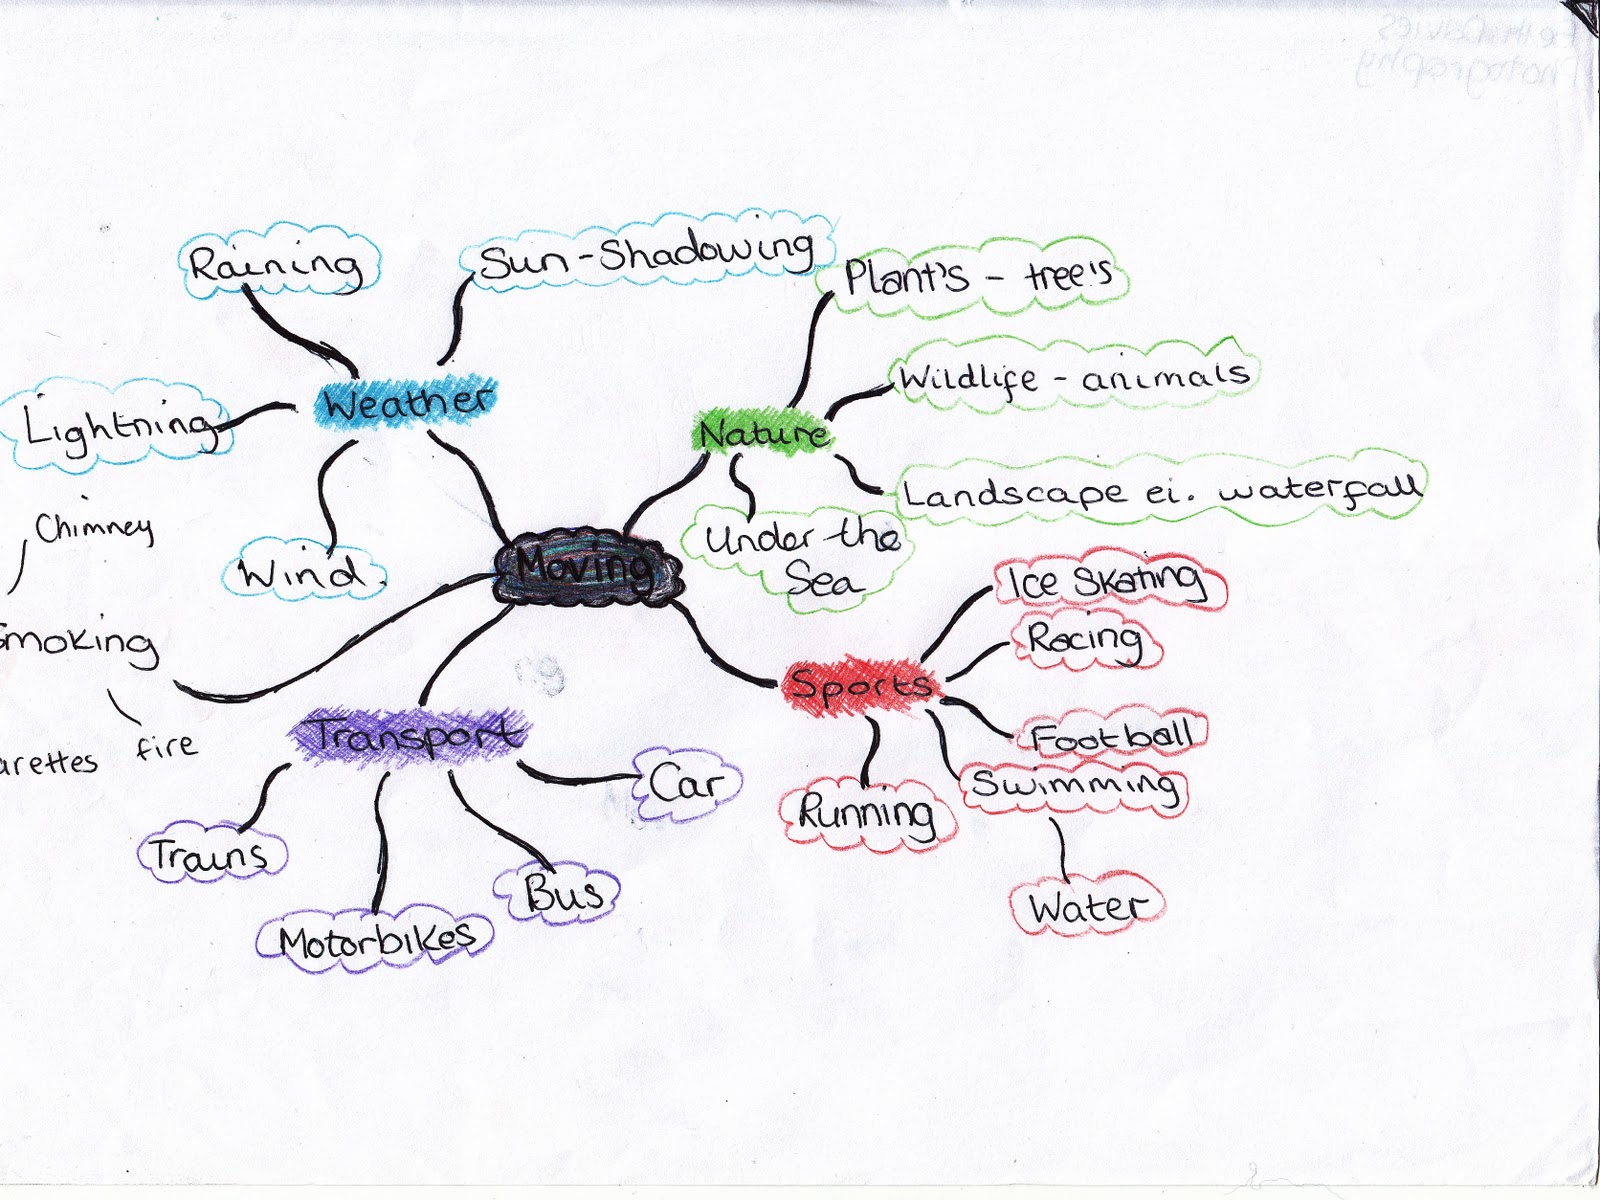 Raining
Sun-Shadowing
Plant's - tree's
Wildlife - animals
Weather
Lightning
Nature
Landscape ei. waterfall
Chimney
Under the
Sea
Wind.
Moving
Ice Skating
Racing
Smoking
Sports
Football
Transport
fire
Car
Swimming
Running
Trains
Bus
Water
Motorbikes
Photography